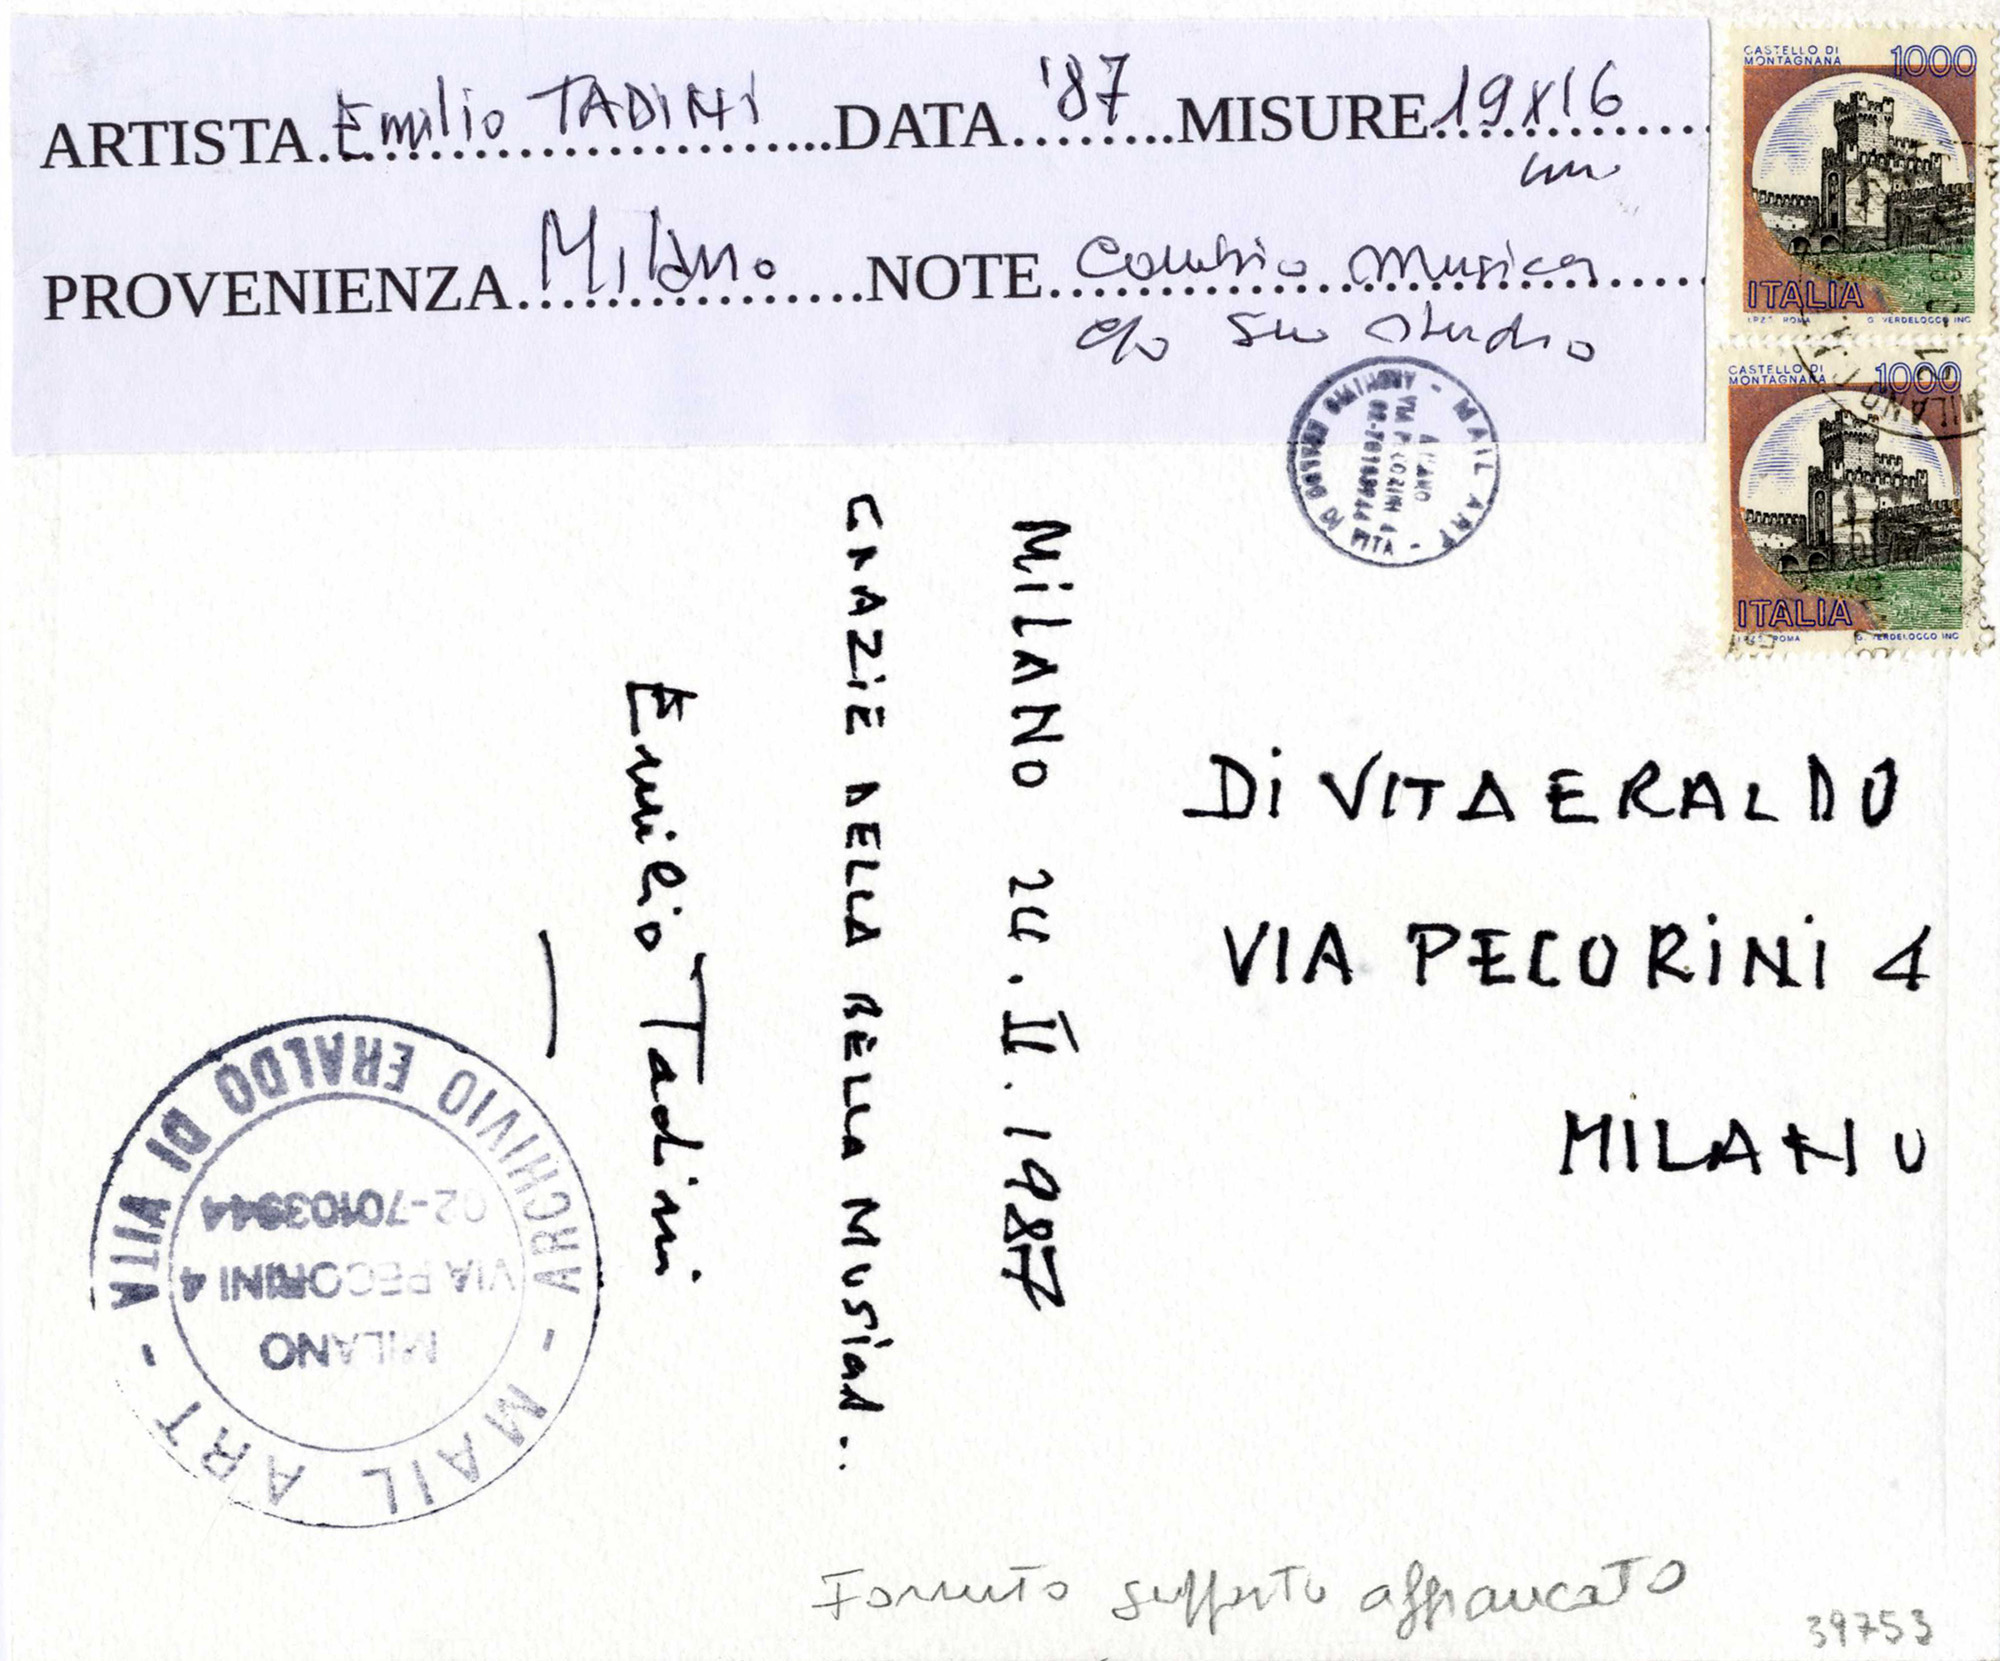 ARTISTA Emilio TADINI DATA '87 MISURE 19x16
cm
PROVENIENZA Milano NOTE Cambio musica
c/o suo studio
CASTELLO DI
MONTAGNANA
1000
ITALIA
I.P.Z.S. ROMA G. VERDELOCCO INC
CASTELLO DI
MONTAGNANA
1000
ITALIA
I.P.Z.S. ROMA G. VERDELOCCO INC
MILANO
ARCHIVIO ERALDO DI VITA - MAIL ART -
MILANO
VIA PECORINI 4
02-70103944
MILANO 24.II.1987
GRAZIE DELLA BELLA MUSICA..
Emilio Tadini
DI VITA ERALDO
VIA PECORINI 4
MILANO
ARCHIVIO ERALDO DI VITA - MAIL ART -
MILANO
VIA PECORINI 4
02-70103944
Fornito supporto affrancato
39753